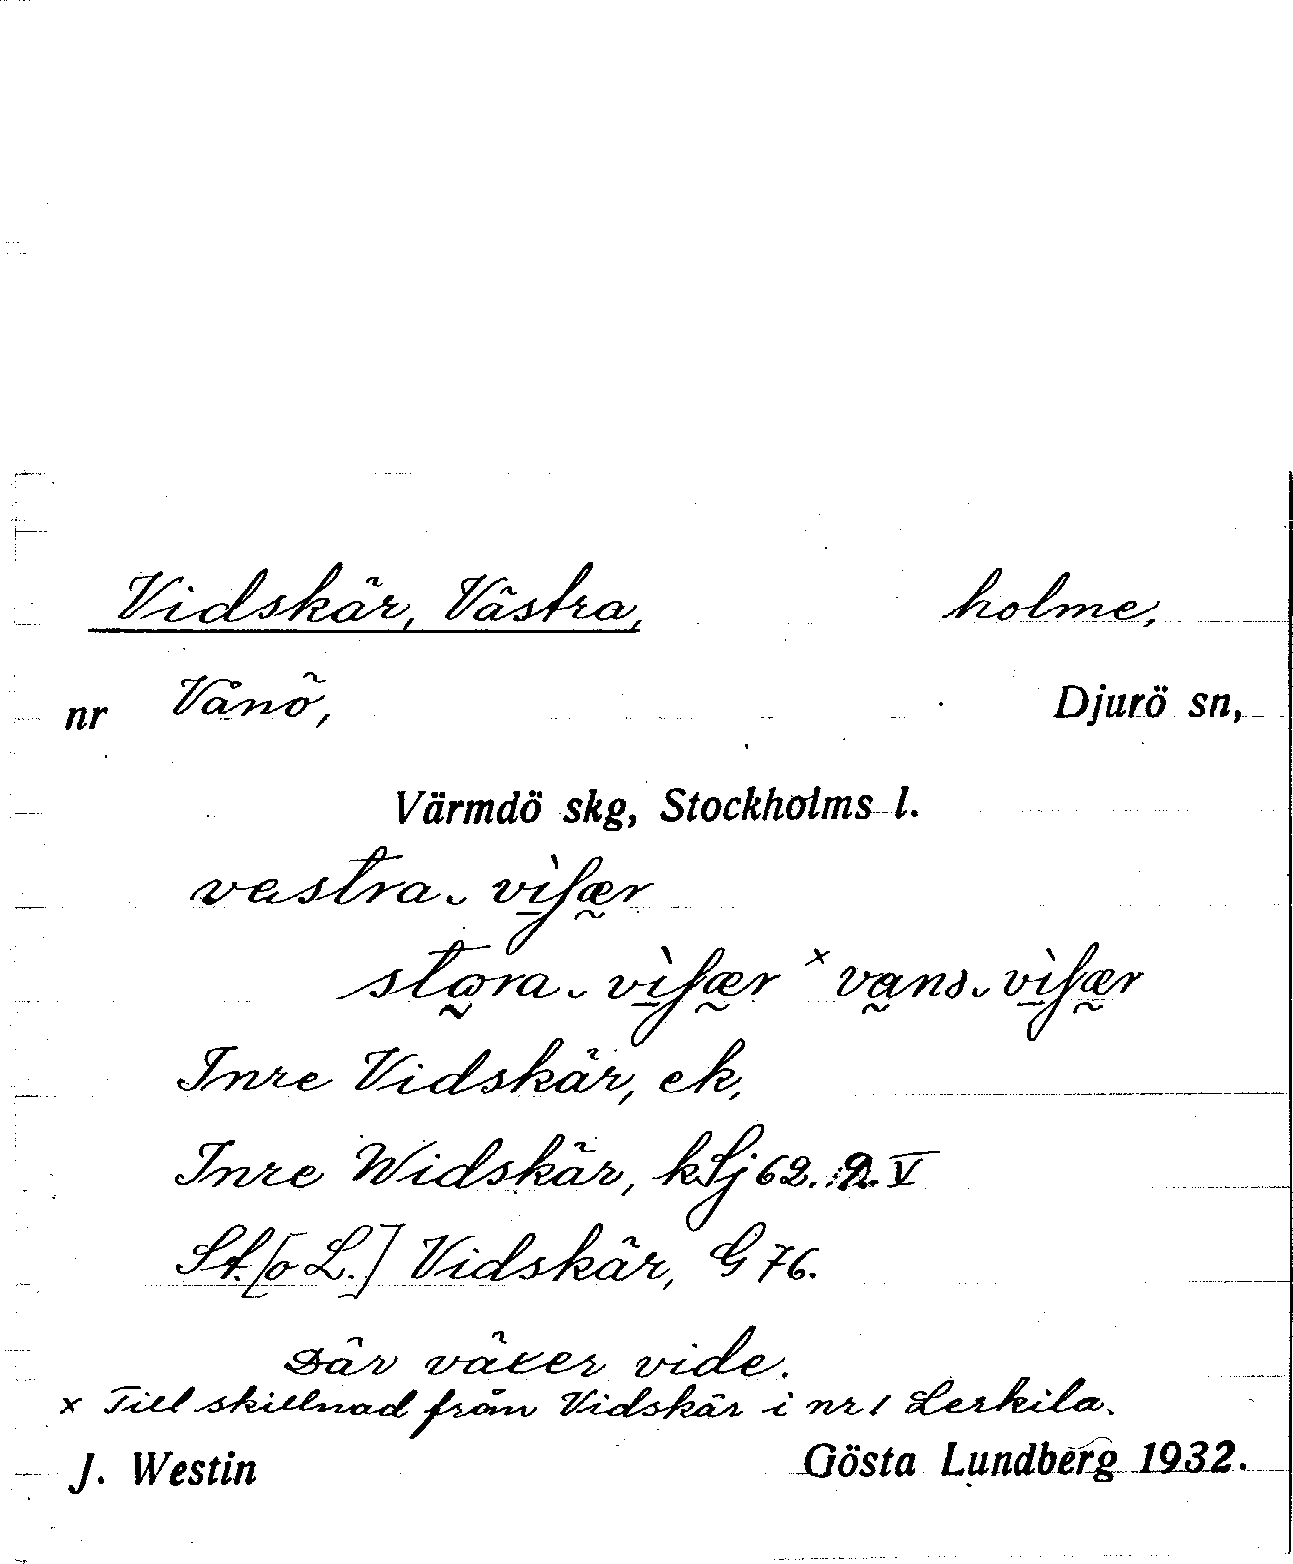 Vidskär, Västra, holme,
nr Vånö, Djurö sn,
Värmdö skg, Stockholms l.
vestra. vìʃær
stωra. vìʃær × vans. vìʃær
Inre Vidskär, ek,
Inre Widskär, kSj 62. 2. V
St. [o L.] Vidskär, G 76.
Där växer vide.
× Till skillnad från Vidskär i nr 1 Lerkila.
J. Westin Gösta Lundberg 1932.